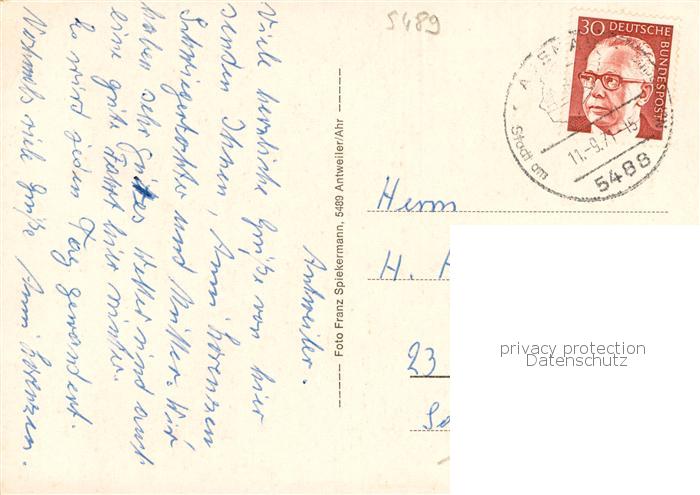 5489
Antweiler.
Viele herzliche Grüße von hier
senden Ihnen, Anni Lorenzen
Schwiegertochter und Mutter. Wir
haben sehr gutes Wetter und auch
eine gute Fahrt hier
Es wird jeden Tag gewandert.
Nochmals viele Grüße Anni Lorenzen.
Foto Franz Spiekermann, 5489 Antweiler/Ahr
30 DEUTSCHE
BUNDESPOST
Stadt am
11.-9.71-15
5488
Herrn
H.
23
privacy protection
Datenschutz